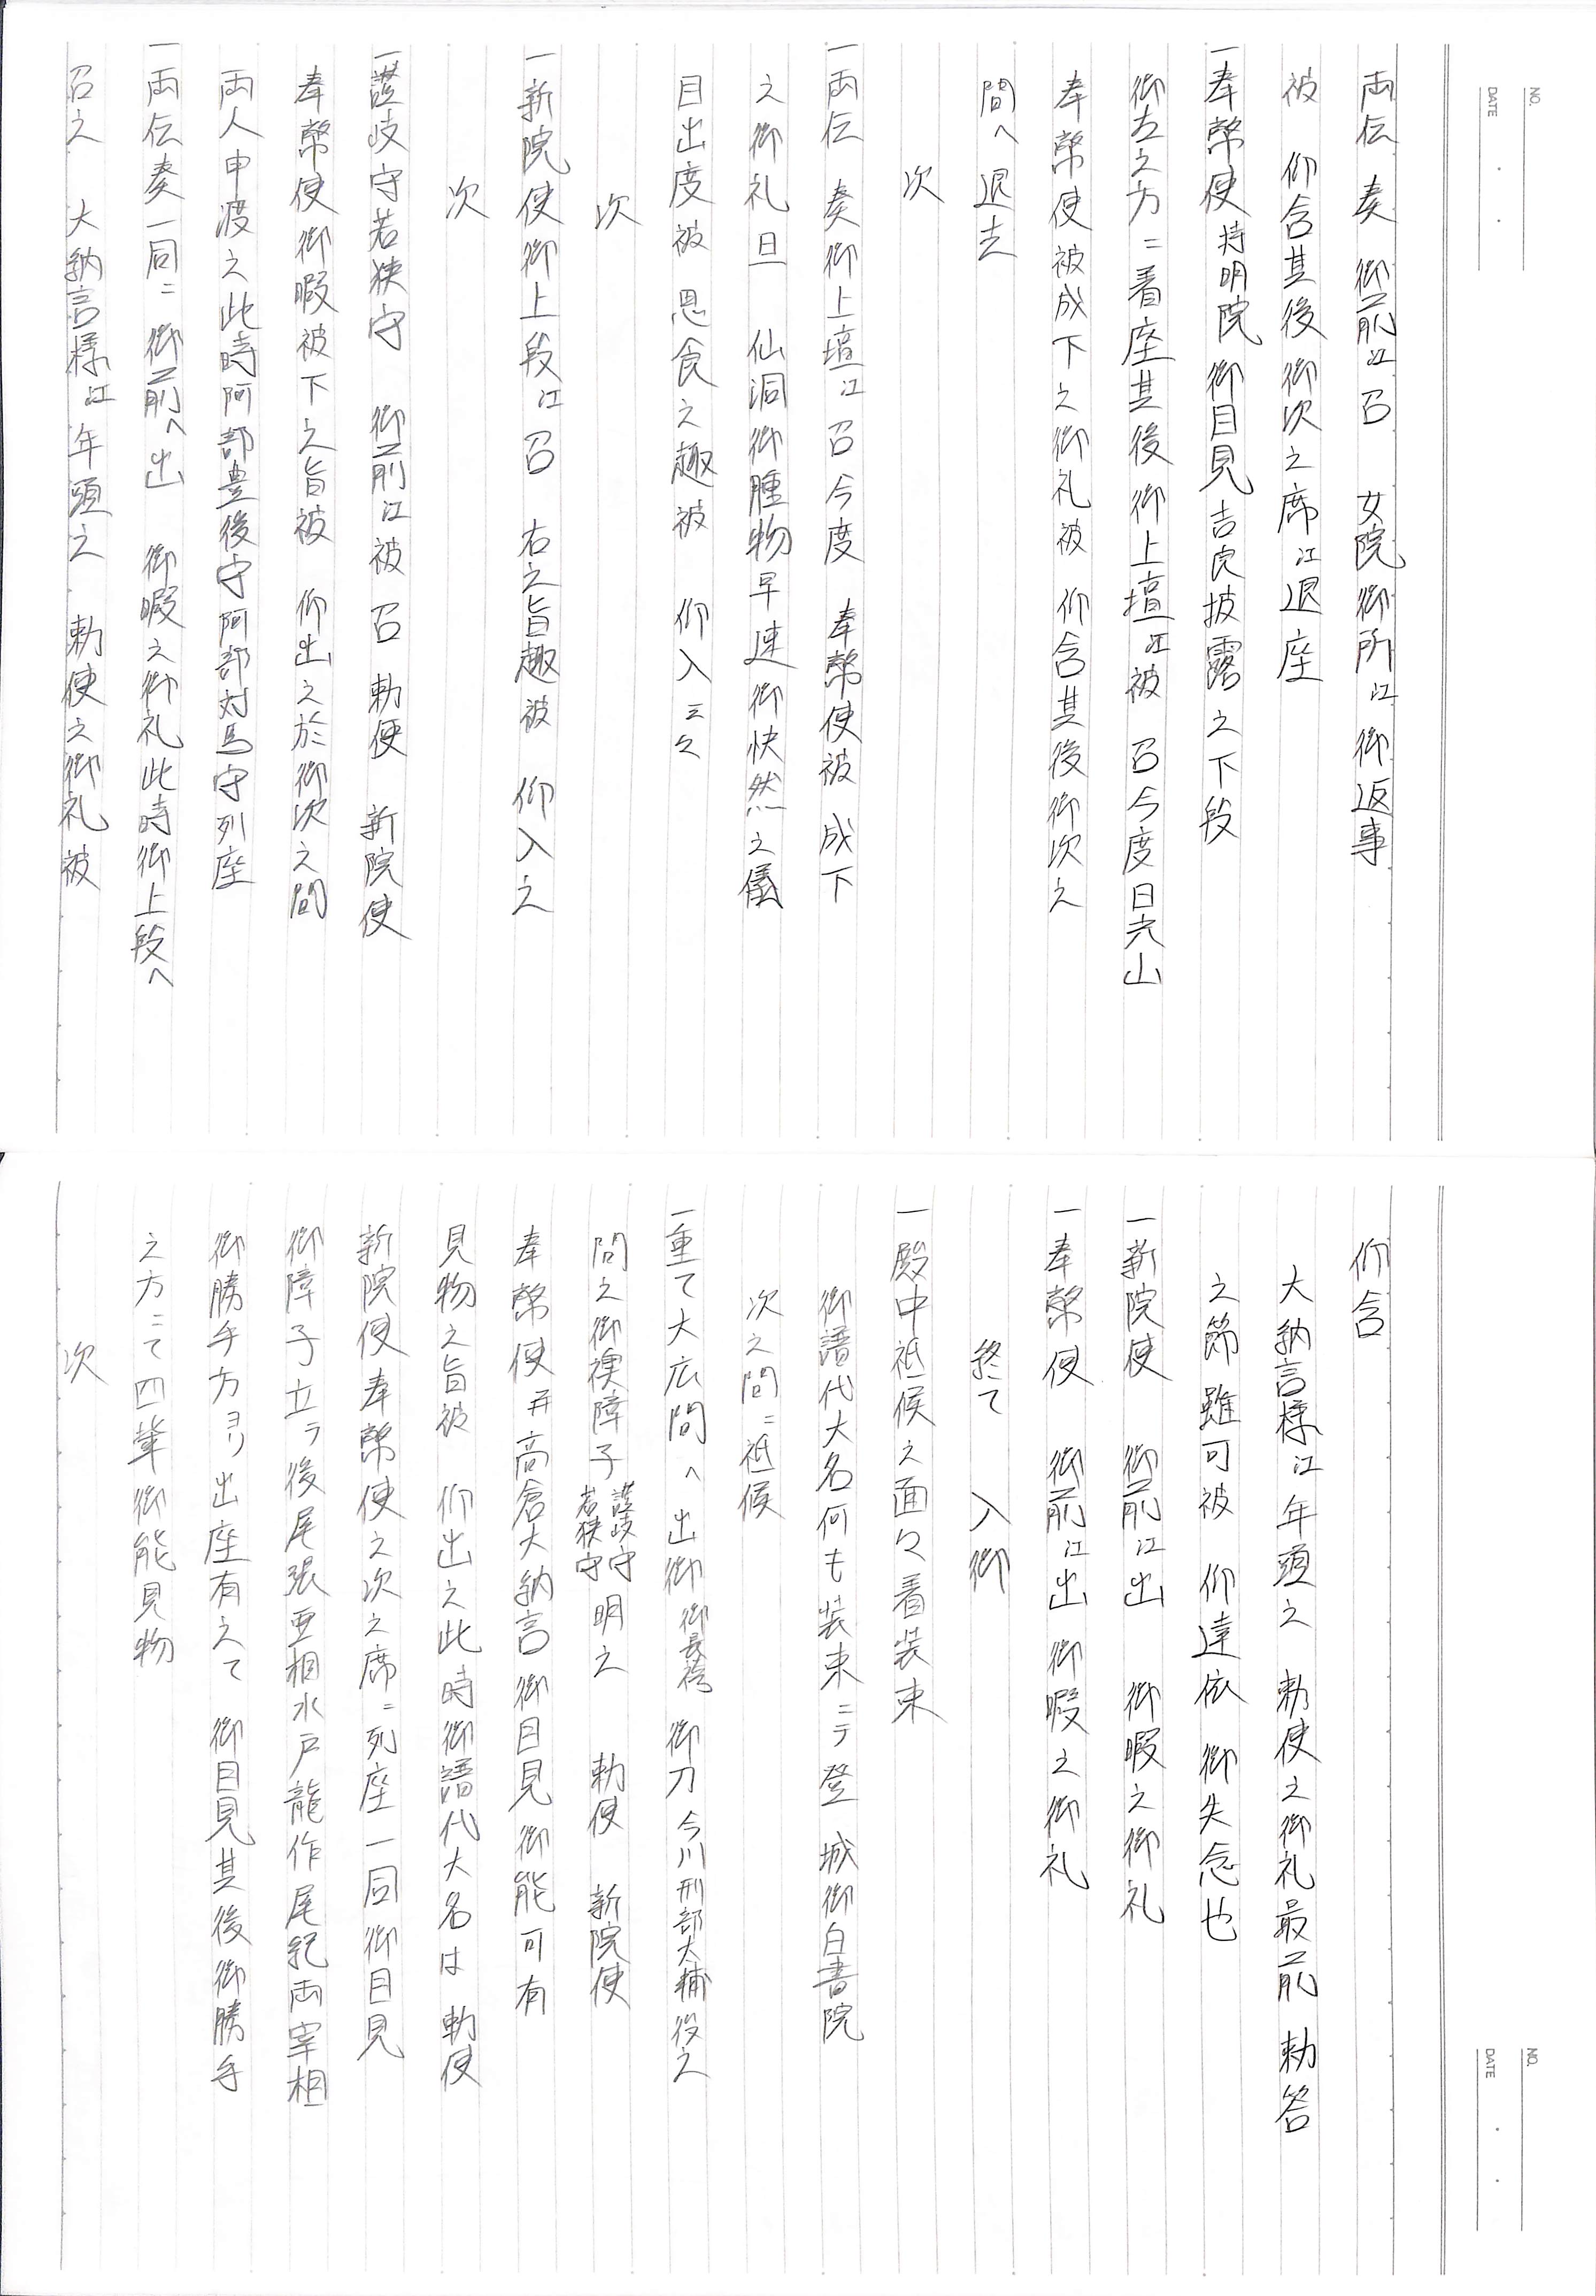 NO.
DATE
両伝 奏 御前江召 女院御所江御返事
被 仰含其後御次之席江退座
一奉幣使持明院 御目見吉良披露之下段
御左之方ニ着座其後御上壇江被 召今度日光山
奉幣使被成下之御礼被 仰含其後御次之
間へ退去
次
一両伝 奏御上壇江召今度 奉幣使被 成下
之御礼且 仙洞御腫物早速御快然之儀
目出度被 思食之趣被 仰入云々
次
一新院使御上段江召 右之旨趣被 仰入之
次
一讃岐守若狭守 御前江被 召 勅使 新院使
奉幣使御暇被下之旨被 仰出之於御次之間
両人申渡之此時阿部豊後守阿部対馬守列座
一両伝奏一同ニ 御前へ出 御暇之御礼此時御上段へ
召之 大納言様江年頭之 勅使之御礼被
NO.
DATE
仰含
大納言様江年頭之 勅使之御礼最前 勅答
之節雖可被 仰達依 御失念也
一新院使 御前江出 御暇之御礼
一奉幣使 御前江出 御暇之御礼
終て 入御
一殿中祗候之面々着装束
御譜代大名何も装束ニテ登 城御白書院
次之間ニ祗候
一重て大広間へ出御御長袴 御刀今川刑部大輔役之
間之御襖障子讃岐守若狭守明之 勅使 新院使
奉幣使并高倉大納言御目見御能可有
見物之旨被 仰出之此時御譜代大名は 勅使
新院使奉幣使之次之席ニ列座一同御目見
御障子立テ後尾張亜相水戸龍作尾紀両宰相
御勝手方ヨリ出座有之て 御目見其後御勝手
之方ニて四輩御能見物
次